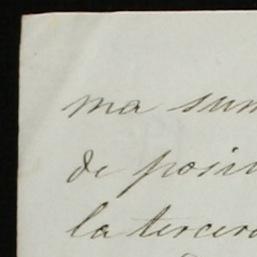 ma sum
de posi
la tercera